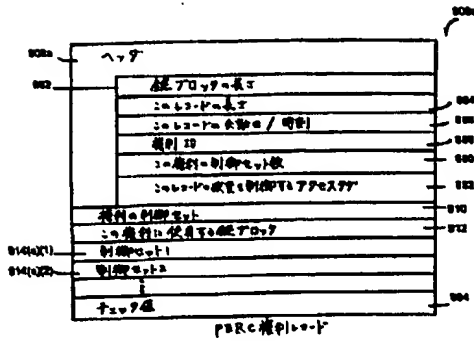 908a
ヘッダ
908a
982
鍵ブロックの長さ
このレコードの長さ
984
このレコードの失効日/時刻
986
権利ID
988
この権利の制御セット数
990
このレコードの改変を制御するアクセスタグ
992
権利の制御セット
910
この権利に使用する鍵ブロック
912
914(a)(1)
制御セット1
914(a)(2)
制御セット2
チェック値
994
PERC権利レコード